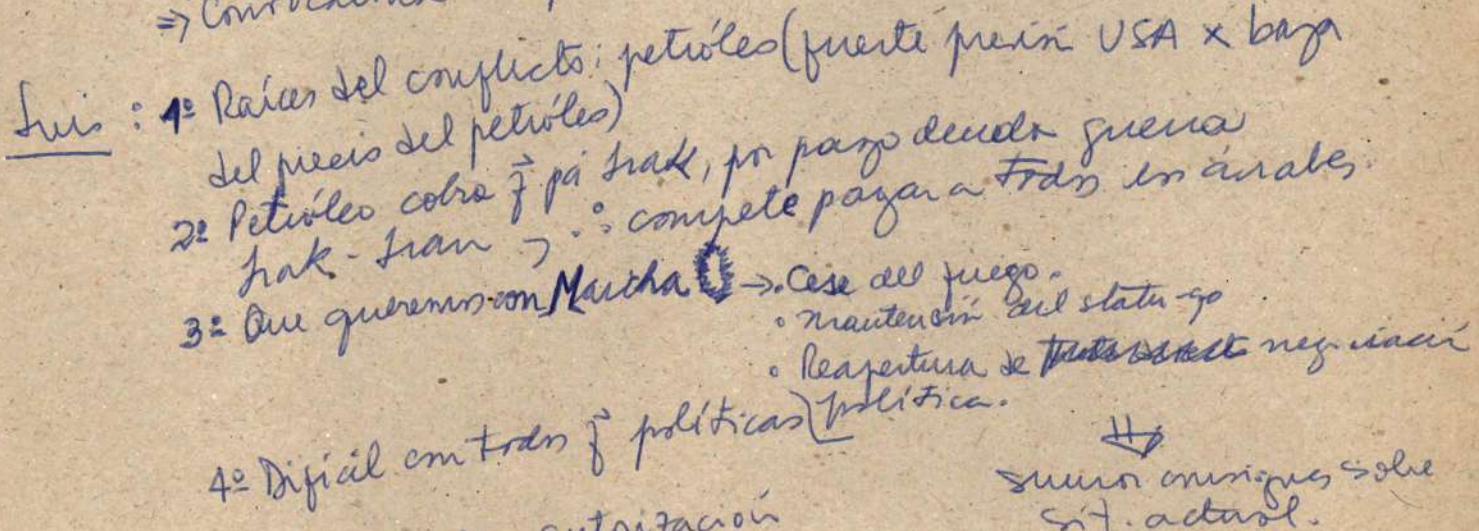 ⇒
Luis : 1º Raíces del conflicto: petróleo (fuerte presión USA x baja
del precio del petróleo)
2º Petróleo cobra f⃗ pá Irak, por pago deuda guerra
Irak - Iran → ∴ compete pagar a todos los árabes.
3º Que queremos con Marcha → • Cese del fuego.
• mantención del statu-qo
• Reapertura de negociación
política.
4º Difícil con todas f⃗ políticas
⇓
consignas sobre
sit. actual.